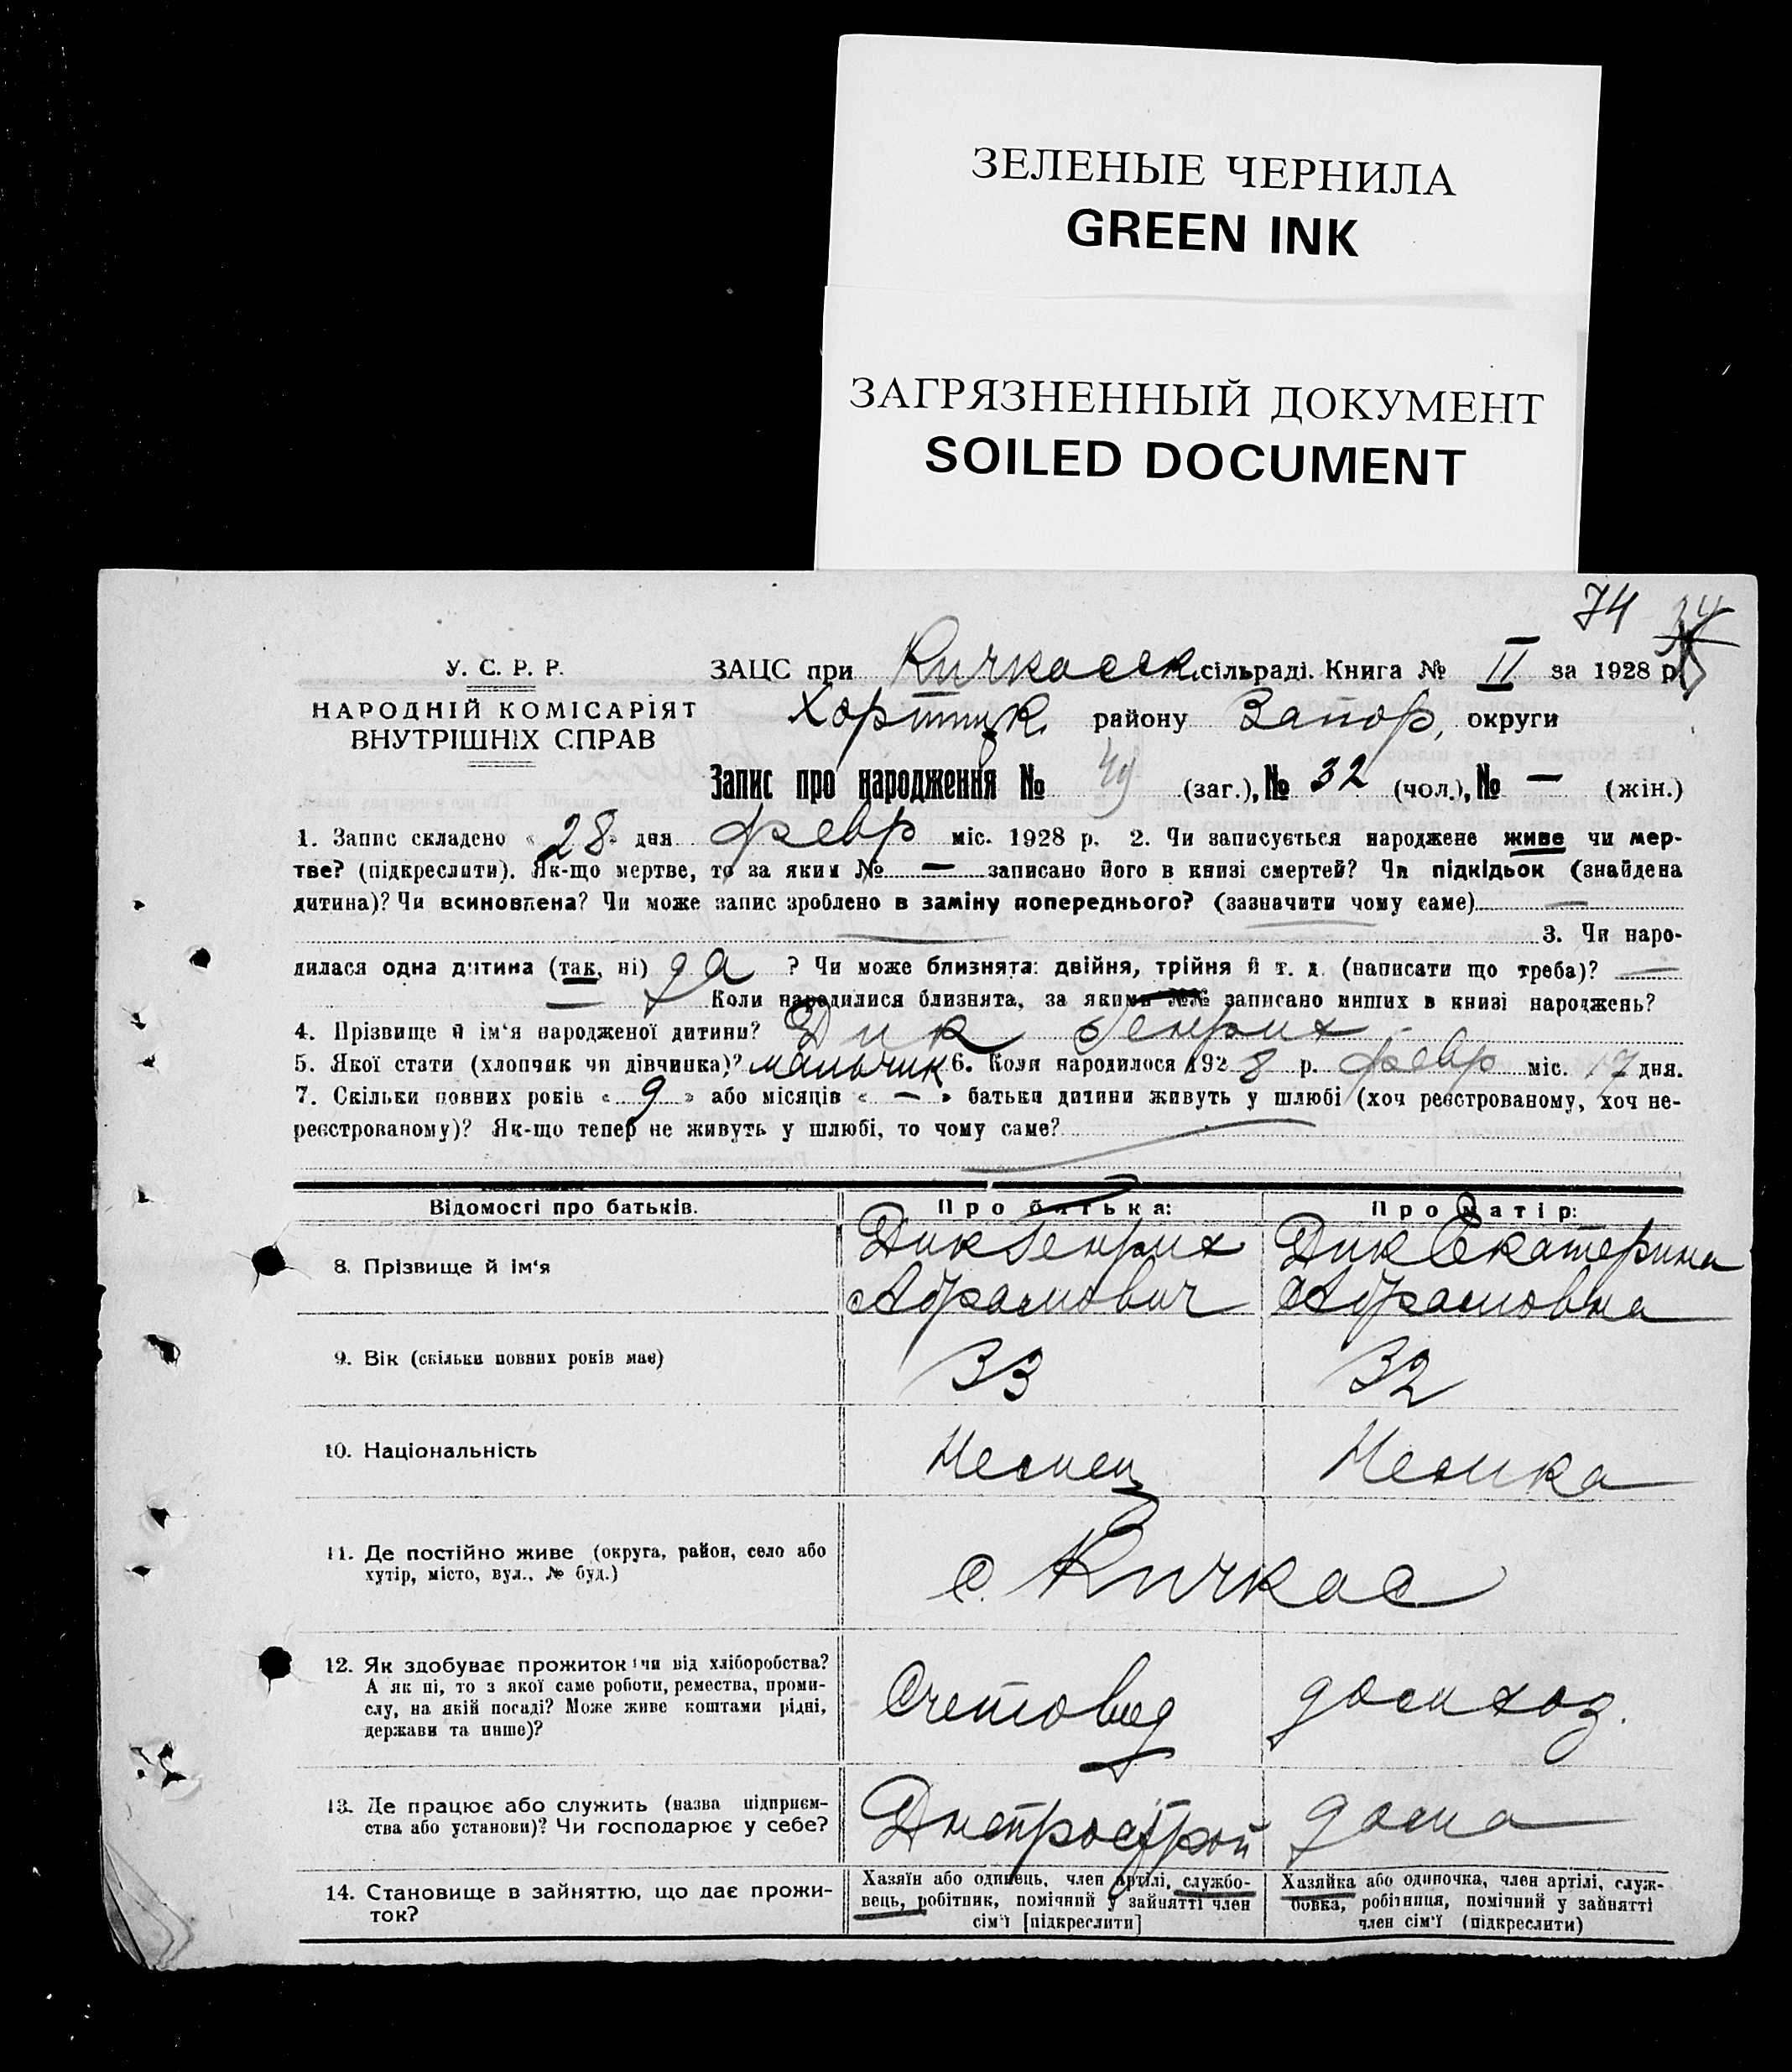 ЗЕЛЕНЫЕ ЧЕРНИЛА
GREEN INK
ЗАГРЯЗНЕННЫЙ ДОКУМЕНТ
SOILED DOCUMENT
74
У. С. Р. Р.
НАРОДНІЙ КОМІСАРІЯТ
ВНУТРІШНІХ СПРАВ
ЗАЦС при Кичкасск. сільраді. Книга № II за 1928 р.
Хортицк. району Запор. округи
Запис про народження № 49 (заг.), № 32 (чол.), № — (жін.)
1. Запис складено «28» дня февр міс. 1928 р. 2. Чи записується народжене живе чи мер-
тве? (підкреслити). Як-що мертве, то за яким № — записано його в книзі смертей? Чи підкідьок (знайдена
дитина)? Чи всиновлена? Чи може запис зроблено в заміну попереднього? (зазначити чому саме) —
— 3. Чи наро-
дилася одна дитина (так, ні) да ? Чи може близнята: двійня, трійня й т. д. (написати що треба)? —
— Коли народилися близнята, за якими №№ записано инших в книзі народжень?
4. Прізвище й ім‘я народженої дитини? Дик Генрих
5. Якої стати (хлопчик чи дівчинка)? мальчик 6. Коли народилося 1928 р. февр міс. 17 дня.
7. Скільки повних років «9» або місяців «—» батьки дитини живуть у шлюбі (хоч реєстрованому, хоч не-
реєстрованому)? Як-що тепер не живуть у шлюбі, то чому саме? —
Відомості про батьків. Про батька: Про матір:
8. Прізвище й ім‘я Дик Генрих Абрамович Дик Екатерина Абрамовна
9. Вік (скільки повних років має) 33 32
10. Національність Немец Немка
11. Де постійно живе (округа, район, село або
хутір, місто, вул., № буд.) с. Кичкас
12. Як здобуває прожиток: чи від хліборобства?
А як ні, то з якої саме роботи, ремества, проми-
слу, на якій посаді? Може живе коштами рідні,
держави та инше)? Счетовод домхоз.
13. Де працює або служить (назва підприєм-
ства або установи)? Чи господарює у себе? Днепрострой дома
14. Становище в зайняттю, що дає прожи-
ток?
Хазяїн або одинець, член артілі, службо-
вець, робітник, помічний у зайнятті член
сім‘ї [підкреслити]
Хазяйка або одиночка, член артілі, служ-
бовка, робітниця, помічний у зайнятті
член сім‘ї (підкреслити)